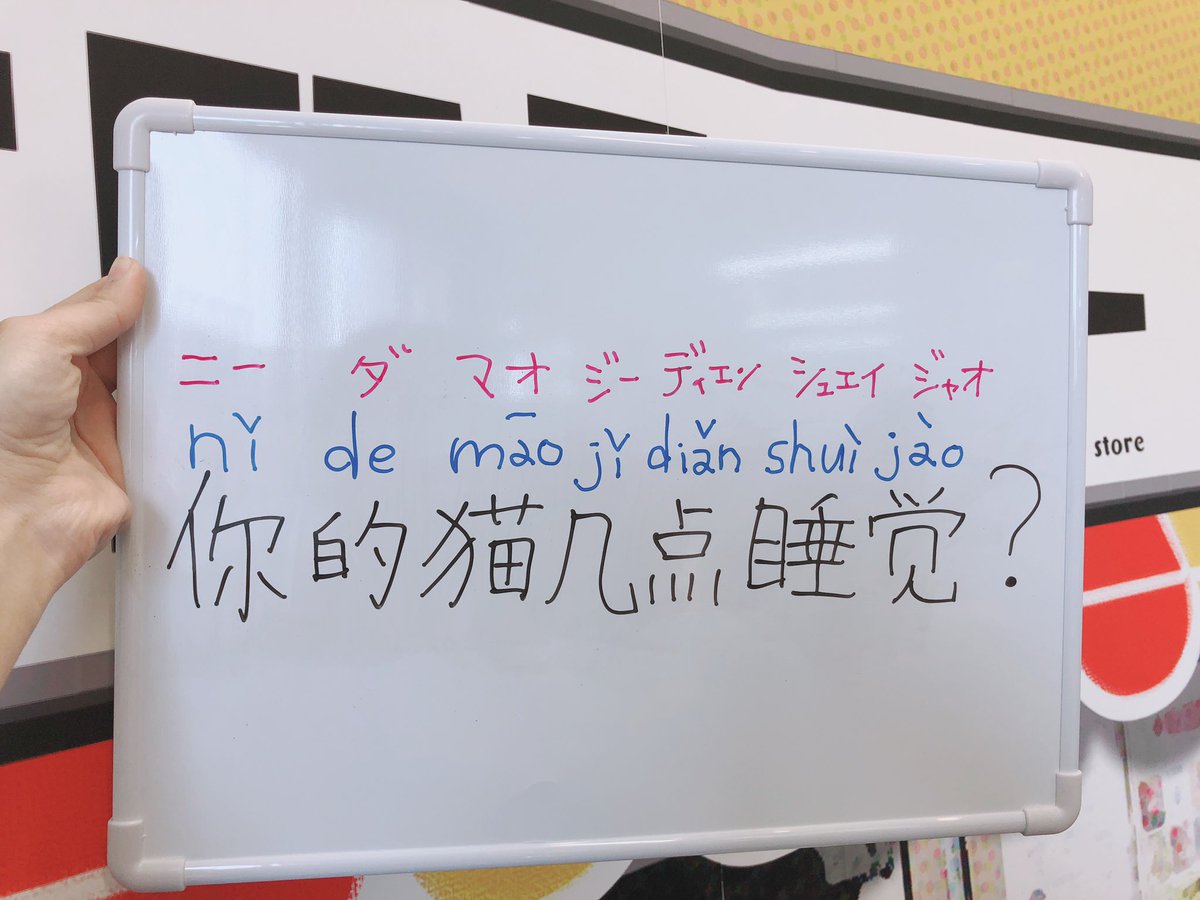 ニー ダ マオ ジー ディエン シュエイ ジャオ
nǐ de māo jǐ diǎn shuì jào
你的猫几点睡觉?
store